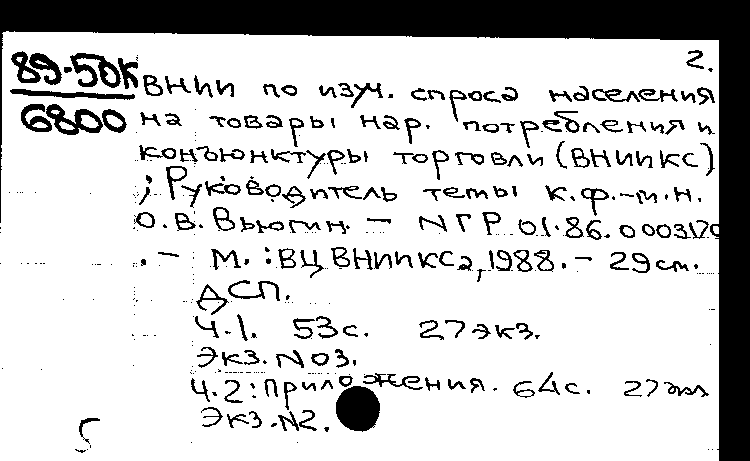 2.
89-50К
6800
ВНИИ по изуч. спроса населения
на товары нар. потребления и
конъюнктуры торговли (ВНИИКС)
; Руководитель темы к.ф.-м.н.
О.В. Вьюгин. – NГР 01.86.0003170
. – М. : ВЦ ВНИИКСа, 1988. – 29 см.
ДСП.
Ч.1. 53 с. 27 экз.
Экз. N03.
Ч.2: Приложения. 64 с. 27 экз
Экз. N2.
5